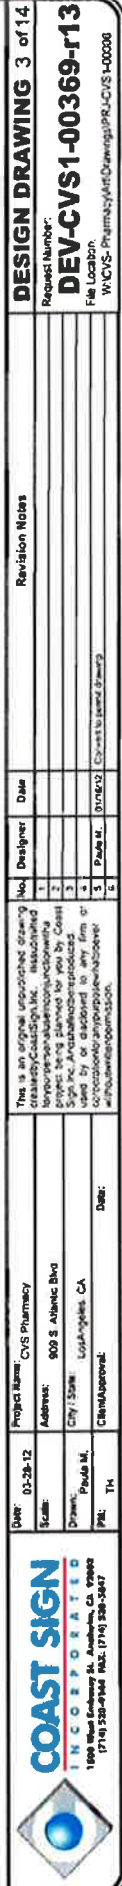 COAST SIGN
INCORPORATED
1500 West Embassy St. Anaheim, CA 92802
(714) 520-9144 FAX: (714) 520-5847
Date: 03-28-12
Scale:
Drawn: Paula M.
PM: TH
Project Name: CVS Pharmacy
Address: 909 S Atlantic Blvd
City / State: LosAngeles, CA
ClientApproval: Date:
This is an original unpublished drawing
createdbyCoastSign,Inc. Itissubmitted
foryourpersonaluseinconjunctionwitha
project being planned for you by Coast
used by or disclosed to any firm or
corporationforanypurposewhatsoever
withoutwrittenpermission.
No. Designer Date Revision Notes
1
2
3
4
5 Paula M. 01/16/12 Convert to permit drawing
6
DESIGN DRAWING 3 of 14
Request Number:
DEV-CVS1-00369-r13
File Location:
W:\CVS- Pharmacy\Art\Drawings\PRJ-CVS1-00336